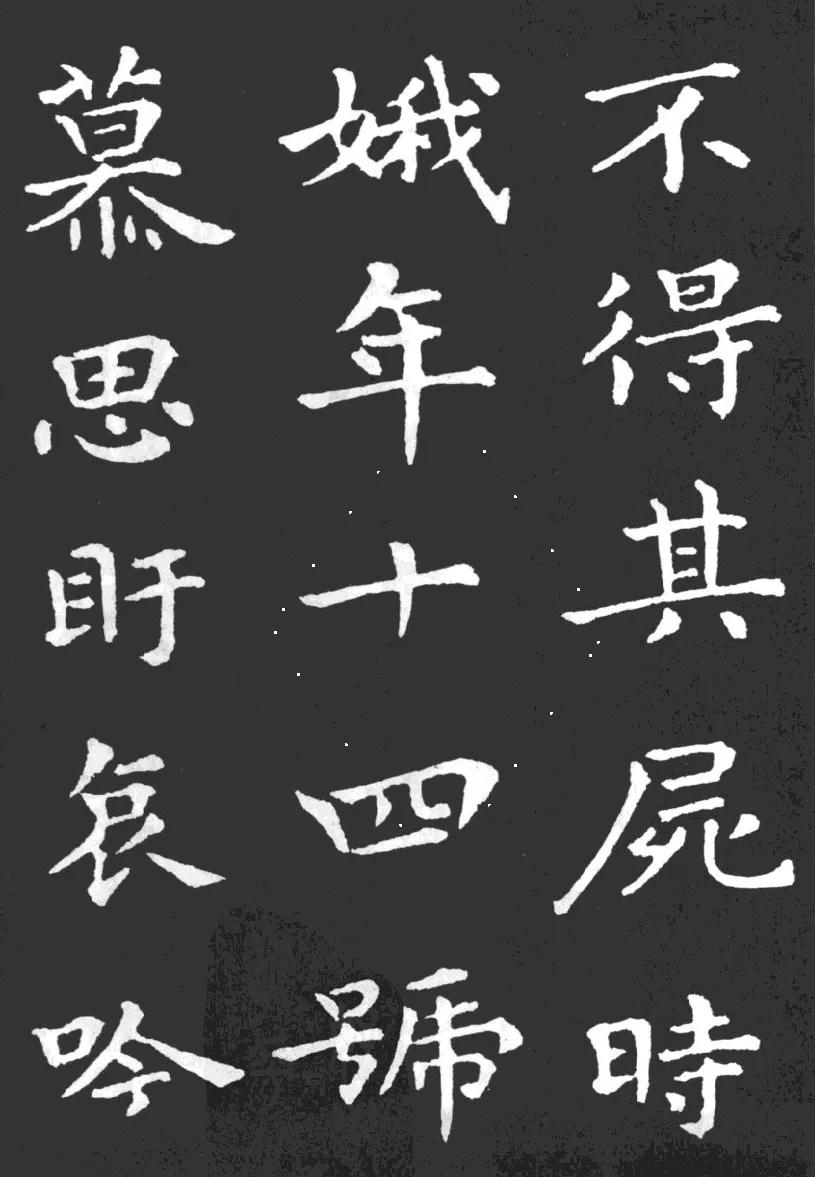 不得其屍時
娥年十四號
慕思盱哀吟